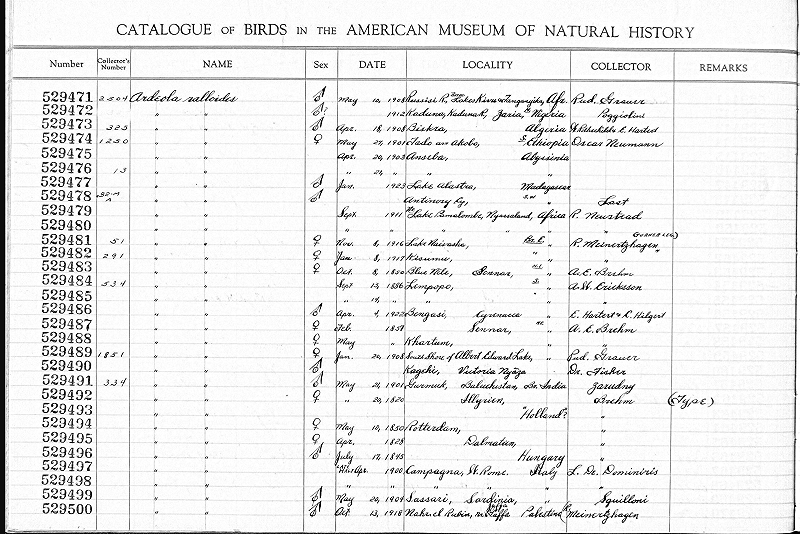 CATALOGUE OF BIRDS IN THE AMERICAN MUSEUM OF NATURAL HISTORY
Number Collector's Number NAME Sex DATE LOCALITY COLLECTOR REMARKS
529471 2504 Ardeola ralloides ♂ May 10, 1908 Russisi R, Lakes Kivu & Tanganyika, Afr. Rud. Grauer
529472 " " ♂ 1912 Kaduna, Kaduna R, Zaria, N Nigeria Poggiolini
529473 325 " " ♂ Apr. 18, 1908 Biskra, Algeria
529474 1250 " " ♀ May 27, 1901 Akobo, S. Ethiopia Oscar Neumann
529475 " " Apr. 20, 1903 Anseba, Abyssinia
529476 13 " " " 21, " " "
529477 " " ♂ Jan. 1923 Lake Alaotra, Madagascar
529478 " " ♂ S.W. " Last
529479 " " Sept. 1911 Lake Nyasaland, Africa R. Newstead
529480 " " " " " " " "
529481 51 " " ♀ Nov. 8, 1916 Lake Naivasha, Br. E. " R. Meinertzhagen
529482 291 " " ♀ Jan. 8, 1917 Kisumu, " " "
529483 " " ♀ Oct. 8, 1850 Blue Nile, Sennar, N.E. " A. E. Brehm
529484 534 " " Sept 13, 1886 Limpopo, S. " A. W. Ericksson
529485 " " " 14, " " " "
529486 " " ♂ Apr. 4, 1922 Bengasi, Cyrenaica " E. Hartert & C. Hilgert
529487 " " ♀ Feb. 1851 Sennar, N.E. " A. E. Brehm
529488 " " ♀ May " Khartum, " "
529489 1851 " " ♀ Jan. 20, 1908 Shore of Albert Edward Lake, " Rud. Grauer
529490 " " ♂ Kagehi, Victoria Nyanza Dr. Fisher
529491 334 " " ♂ May 21, 1901 Gurmuk, Baluchistan, Br. India Zarudny
529492 " " ♀ " 20, 1820 Illyrien, Brehm (TYPE)
529493 " " "Holland? "
529494 " " ♀ May 10, 1850 Rotterdam, "
529495 " " ♀ Apr. 1828 Dalmatien, "
529496 " " ♂ July 17, 1845 Hungary "
529497 " " Apr. 1900 Campagna, Rome. Italy L. De. Dominiris
529498 " " " " " " "
529499 " " ♂ May 20, 1904 Sassari, Sardinia, " Squilloni
529500 " " ♂ Oct. 13, 1918 Nahr el Rubin, nr Jaffa Palestine R. Meinertzhagen